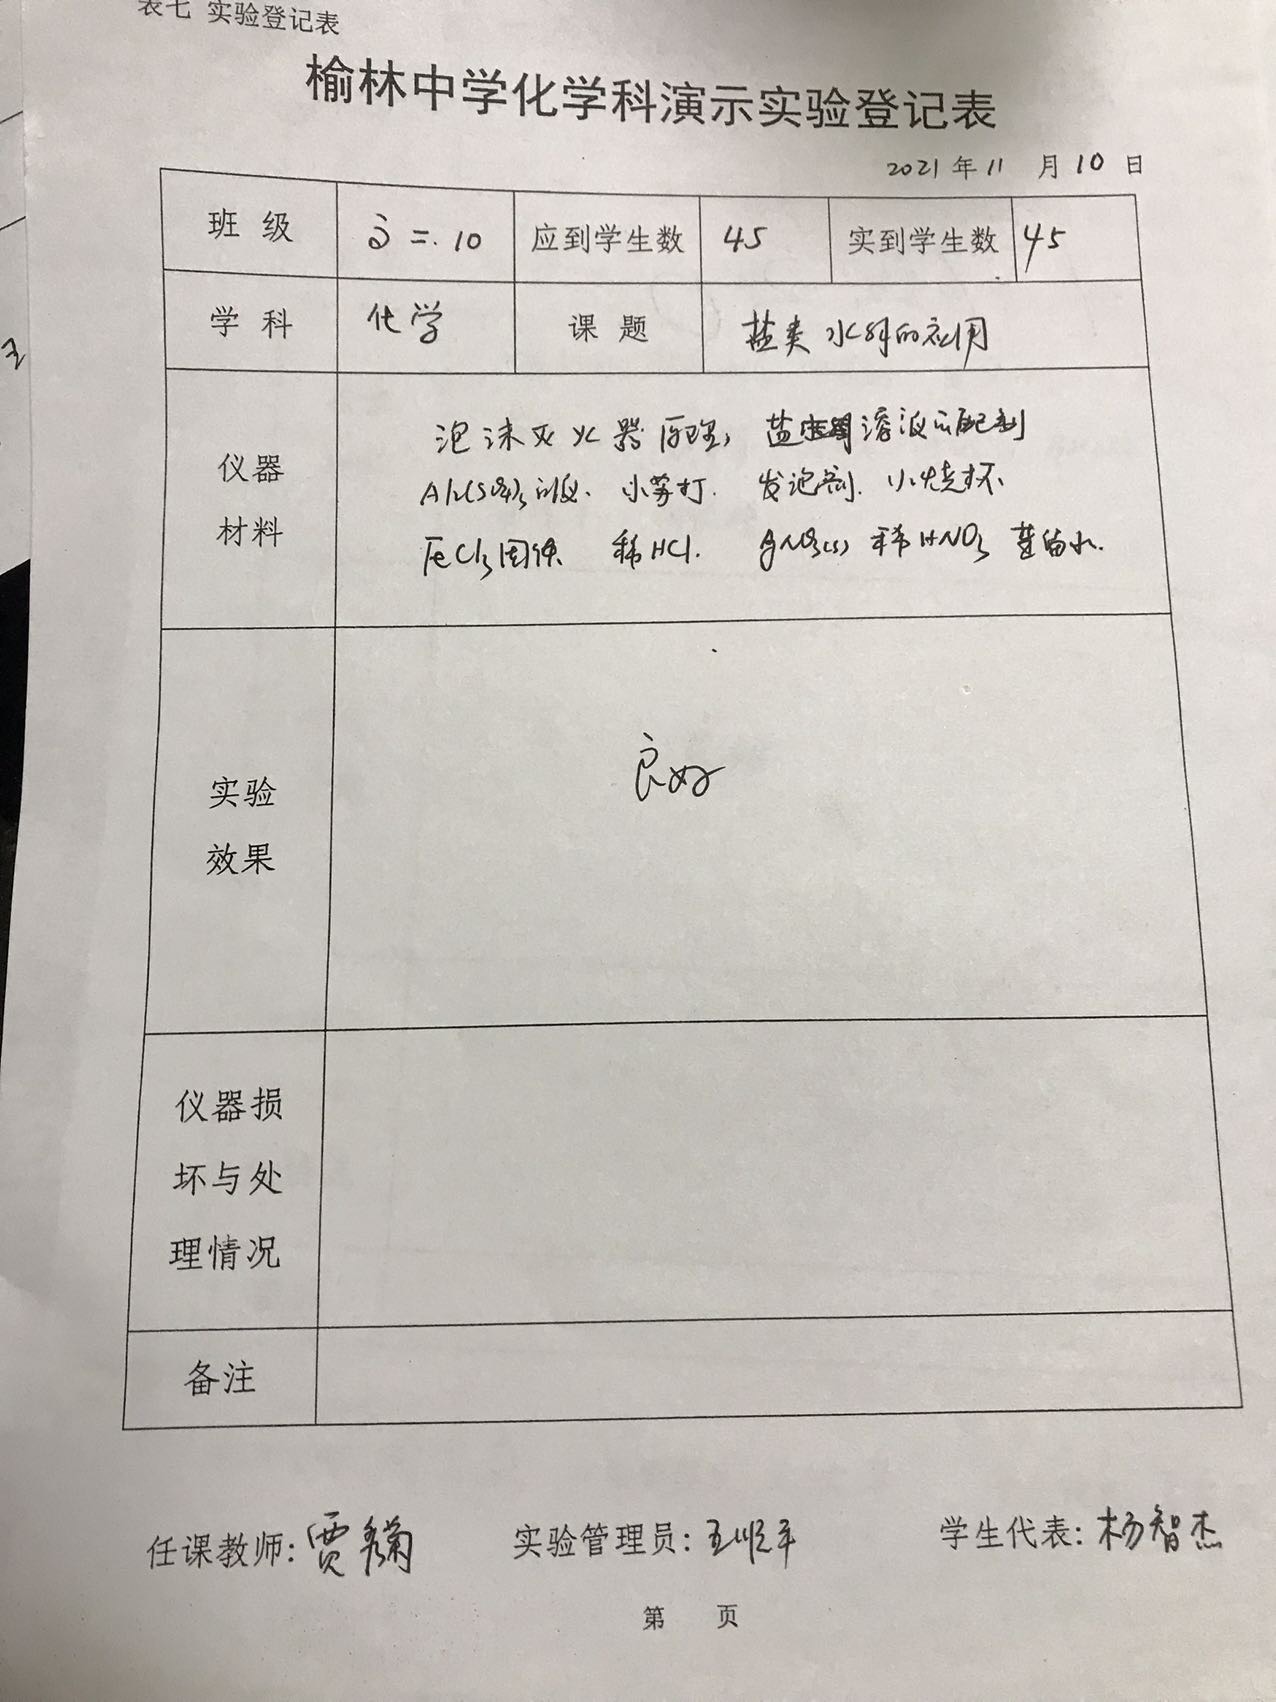 表七 实验登记表
榆林中学化学科演示实验登记表
2021 年 11 月 10 日
班 级 高二.10 应到学生数 45 实到学生数 45
学 科 化学 课 题 盐类水解的应用
仪器
材料
泡沫灭火器原理, 盐溶液的配制
Al₂(SO₄)₃溶液. 小苏打. 发泡剂. 小烧杯
FeCl₃固体 稀HCl. AgNO₃(s) 稀HNO₃ 蒸馏水.
实验
效果
良好
仪器损
坏与处
理情况
备注
任课教师: 贾 实验管理员: 王顺平 学生代表: 杨智杰
第 页